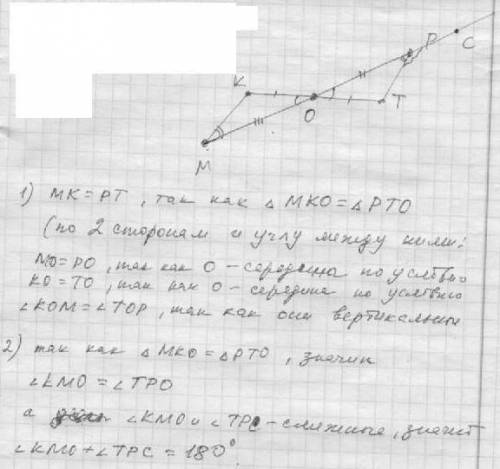 K
O
T
P
C
M
1) MK=PT, так как △ MKO=△PTO
(по 2 сторонам и углу между ними:
MO=PO, так как O - середина по условию
KO=TO, так как O - середина по условию
∠KOM=∠TOP, так как они вертикальны
2) так как △MKO=△PTO, значит
∠KMO=∠TPO
а ∠KMO и ∠TPC - смежные, значит
∠KMO+∠TPC=180°